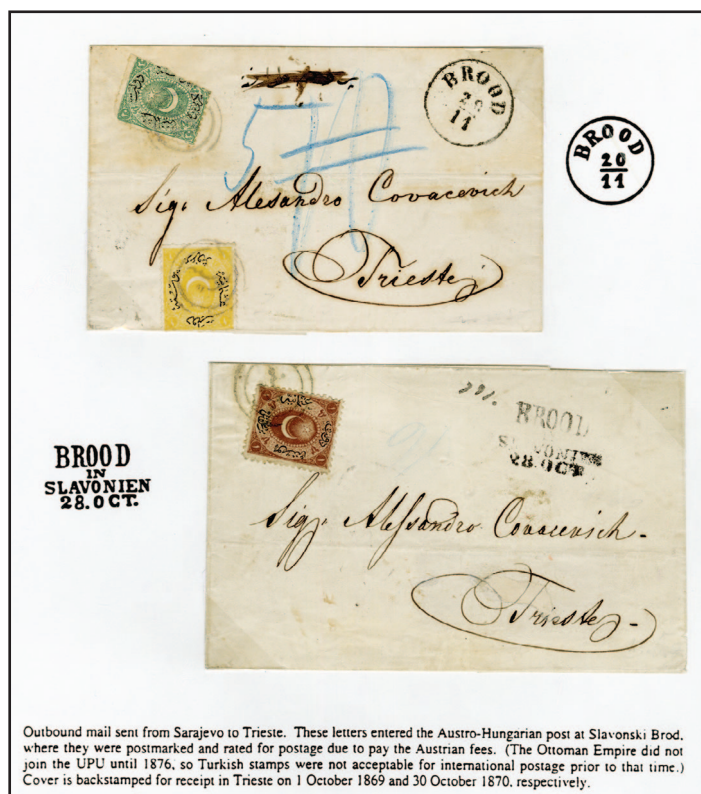 BROOD
20
11
BROOD
20
11
57
Sig: Alesandro Covacevich
Trieste
BROOD
28.OCT.
BROOD
IN
SLAVONIEN
28.OCT.
Sig. Alessandro Covacevich-
Trieste-
Outbound mail sent from Sarajevo to Trieste. These letters entered the Austro-Hungarian post at Slavonski Brod,
where they were postmarked and rated for postage due to pay the Austrian fees. (The Ottoman Empire did not
join the UPU until 1876, so Turkish stamps were not acceptable for international postage prior to that time.)
Cover is backstamped for receipt in Trieste on 1 October 1869 and 30 October 1870, respectively.